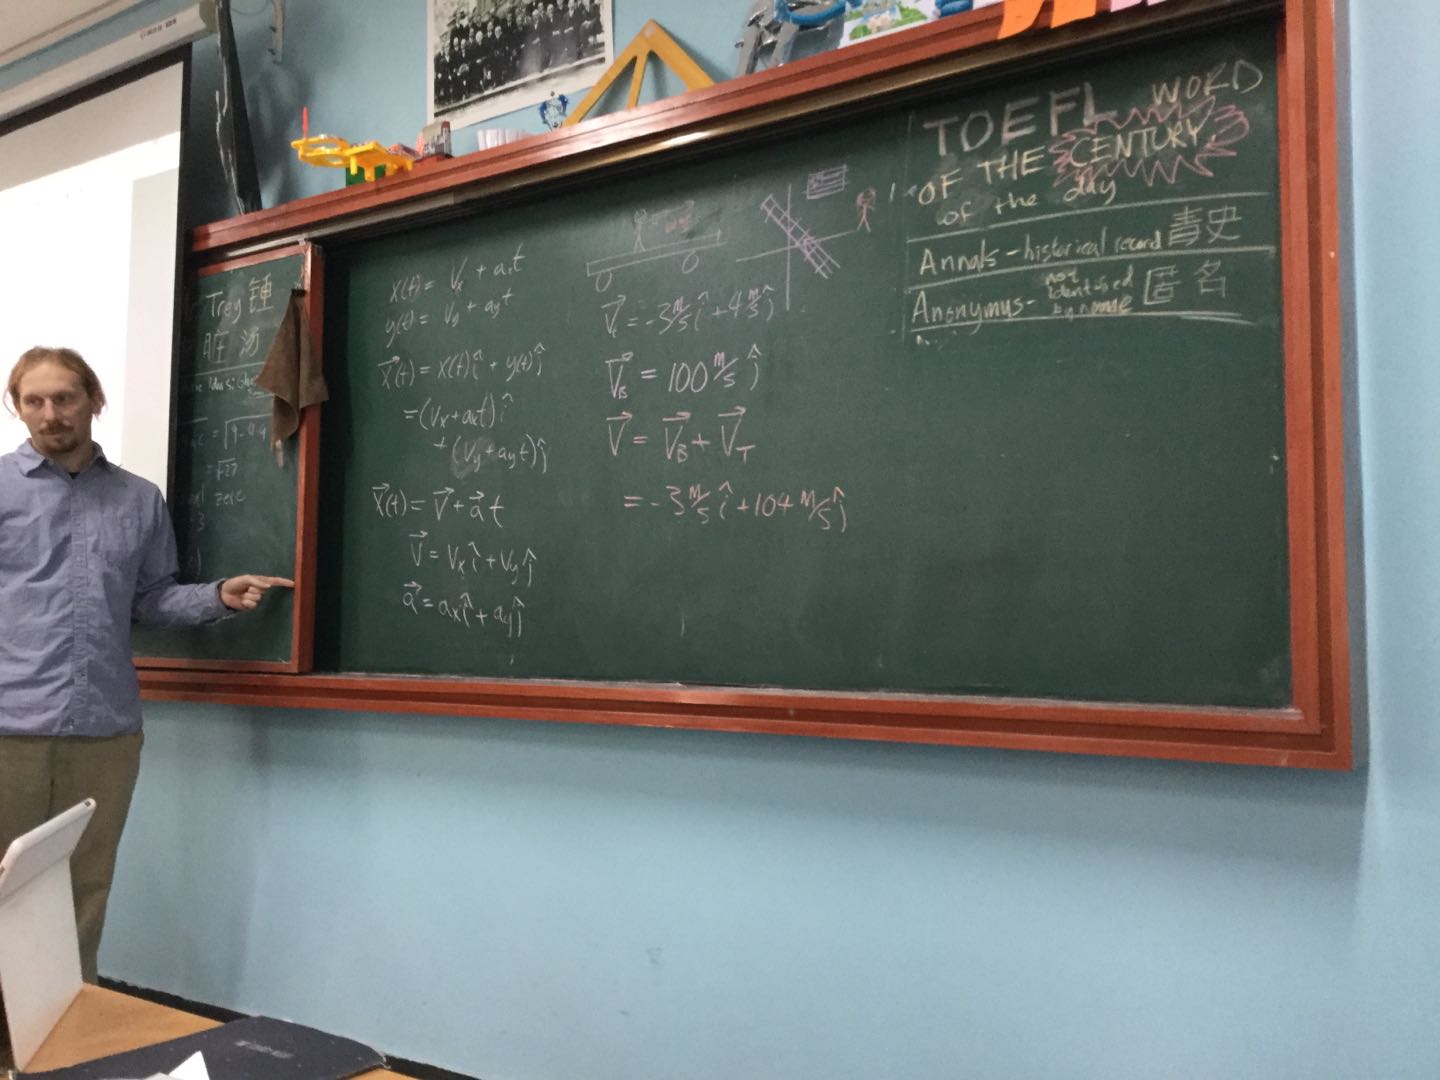 Trey 锺
脏 汤
= √27
zero
x(t) = Vx + axt
y(t) = Vy + ayt
X⃗(t) = x(t)î + y(t)ĵ
= (Vx + axt)î
+ (Vy + ayt)ĵ
X⃗(t) = V⃗ + a⃗t
V⃗ = Vxî + Vyĵ
a⃗ = axî + ayĵ
= -3 m/s î + 4 m/s ĵ
V⃗B = 100 m/s ĵ
V⃗ = V⃗B + V⃗T
= -3 m/s î + 104 m/s ĵ
TOEFL WORD
OF THE CENTURY
of the day
Annals - historical record 青史
Anonymus - not identified by name 匿名